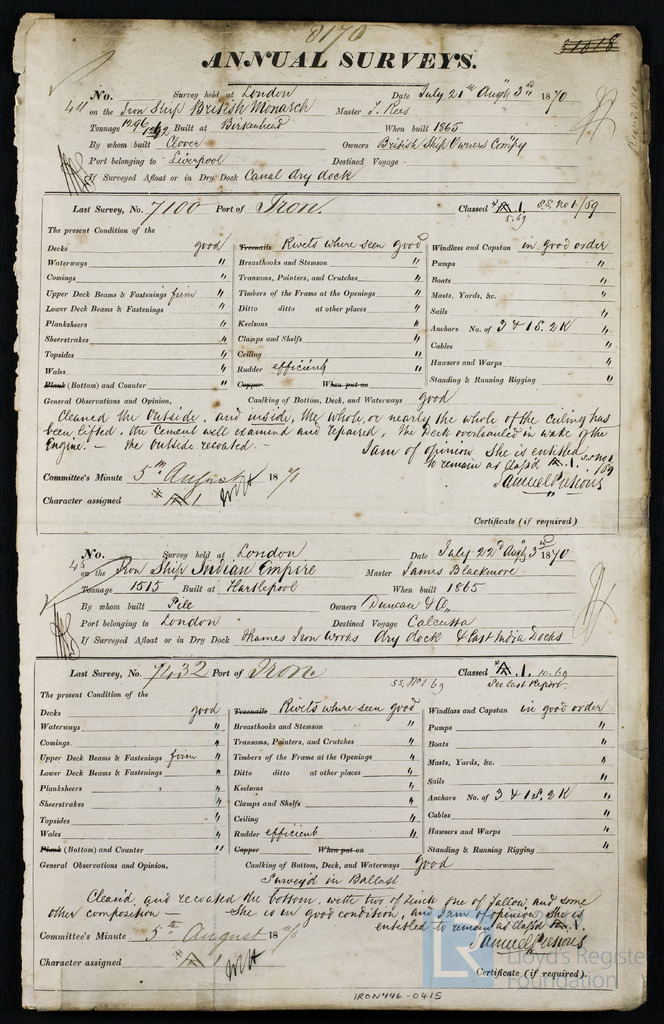 8170
ANNUAL SURVEYS.
No. Survey held at London Date July 21st Augt 3rd 1870
44 on the Iron Ship British Monarch Master J. Rees
Tonnage 1296/1262 Built at Birkenhead When built 1865
By whom built Clover Owners British Ship Owners Compy
Port belonging to Liverpool Destined Voyage
If Surveyed Afloat or in Dry Dock Canal dry dock
Last Survey, No. 7100 Port of Iron. Classed A 1. S.S. No 1/69
5.69
The present Condition of the
Decks good Treenails Rivets where seen good Windlass and Capstan in good order
Waterways " Breasthooks and Stemson " Pumps "
Comings " Transoms, Pointers, and Crutches " Boats "
Upper Deck Beams & Fastenings firm " Timbers of the Frame at the Openings " Masts, Yards, &c. "
Lower Deck Beams & Fastenings " Ditto ditto at other places " Sails "
Planksheers " Keelsons " Anchors No. of 3 & 1 S. 2 K "
Sheerstrakes " Clamps and Shelfs " Cables "
Topsides " Ceiling " Hawsers and Warps "
Wales " Rudder efficient " Standing & Running Rigging "
Plank (Bottom) and Counter " Copper When put on
General Observations and Opinion, Caulking of Bottom, Deck, and Waterways good
Cleaned the Outside, and inside, the whole, or nearly the whole of the ceiling has
been lifted, the Cement well examind and repaired, The Deck overhauled in wake of the
Engine. — the outside recoated. —
I am of opinion She is entitled
to remain as Class'd A 1. S.S. No 1/69
Samuel Pretious
Committee's Minute 5th August 1870
Character assigned A 1
Certificate (if required)
No. Survey held at London Date July 22d Augt 3rd 1870
45 on the Iron Ship Indian Empire Master James Blackmore
Tonnage 1515 Built at Hartlepool When built 1865
By whom built Pile Owners Duncan & Co
Port belonging to London Destined Voyage Calcutta
If Surveyed Afloat or in Dry Dock Thames Iron Works dry dock & East India Docks
Last Survey, No. 7432 Port of Iron Classed A. 1. 10.69
SS. No 1 69 Per last Report.
The present Condition of the
Decks good Treenails Rivets where seen good Windlass and Capstan in good order
Waterways " Breasthooks and Stemson " Pumps "
Comings " Transoms, Pointers, and Crutches " Boats "
Upper Deck Beams & Fastenings firm " Timbers of the Frame at the Openings " Masts, Yards, &c. "
Lower Deck Beams & Fastenings " Ditto ditto at other places " Sails "
Planksheers " Keelsons " Anchors No. of 3 & 1 S. 2 K "
Sheerstrakes " Clamps and Shelfs " Cables "
Topsides " Ceiling " Hawsers and Warps "
Wales " Rudder efficient " Standing & Running Rigging "
Plank (Bottom) and Counter " Copper When put on
General Observations and Opinion, Caulking of Bottom, Deck, and Waterways good
Survey'd in Ballast
Clean'd, and recoated the bottom, with two of Zinck one of Tallow, and some
other composition — She is in good condition, and I am of opinion she is
entitled to remain as Class'd A. 1
Samuel Pretious
Committee's Minute 5th August 1870
Character assigned A 1
Certificate (if required).
LR
Lloyd's Register
Foundation
IRON446-0415